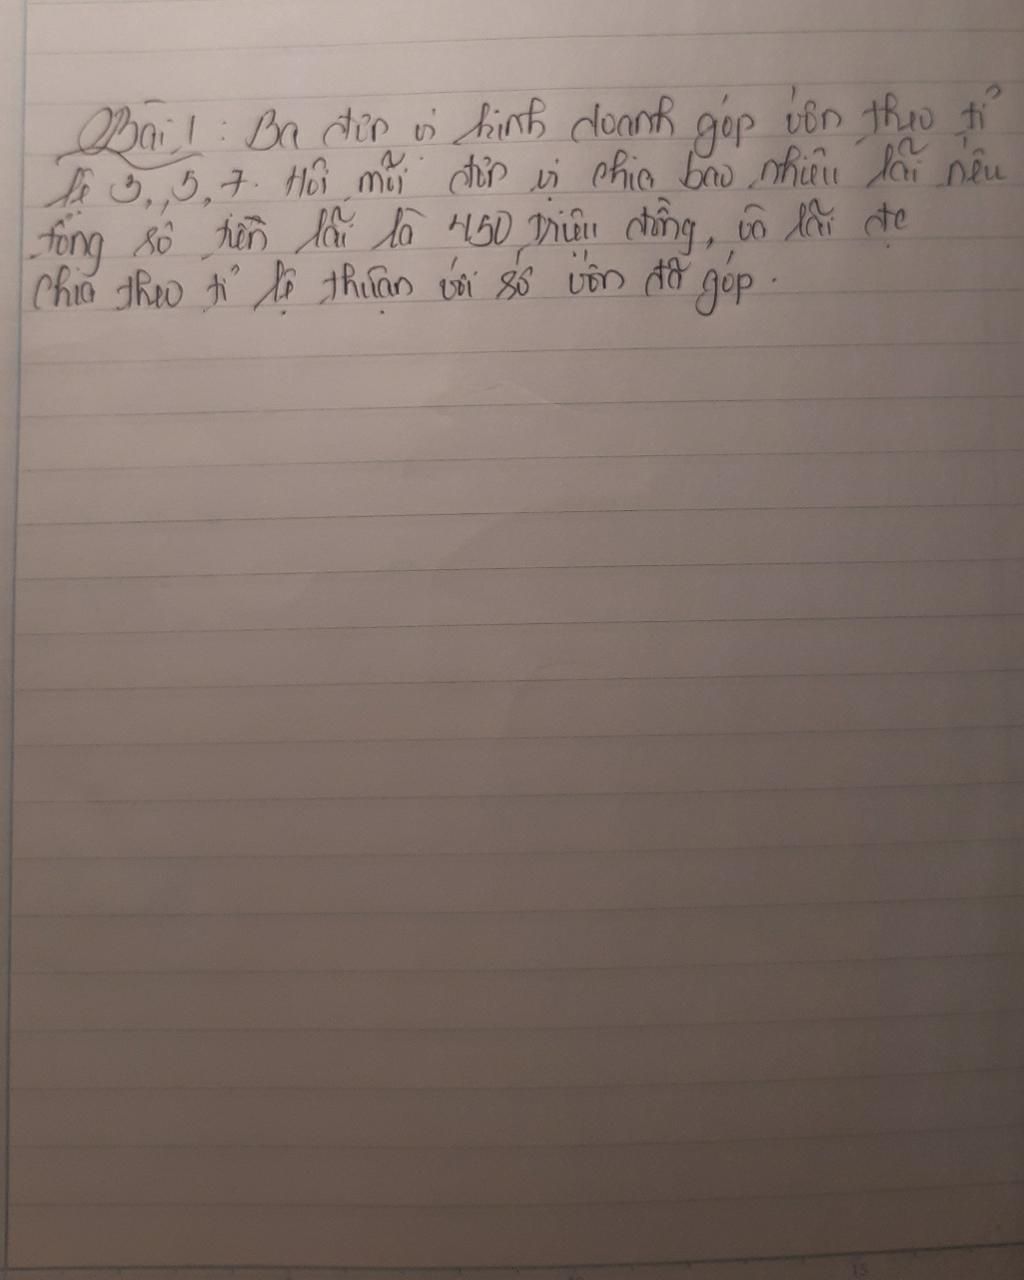 Bài 1 : Ba đơn vị kinh doanh góp vốn theo tỉ
lệ 3, 5, 7. Hỏi mỗi đơn vị chia bao nhiêu lãi nếu
tổng số tiền lãi là 450 triệu đồng, và lãi đc
chia theo tỉ lệ thuận với số vốn đã góp.
15